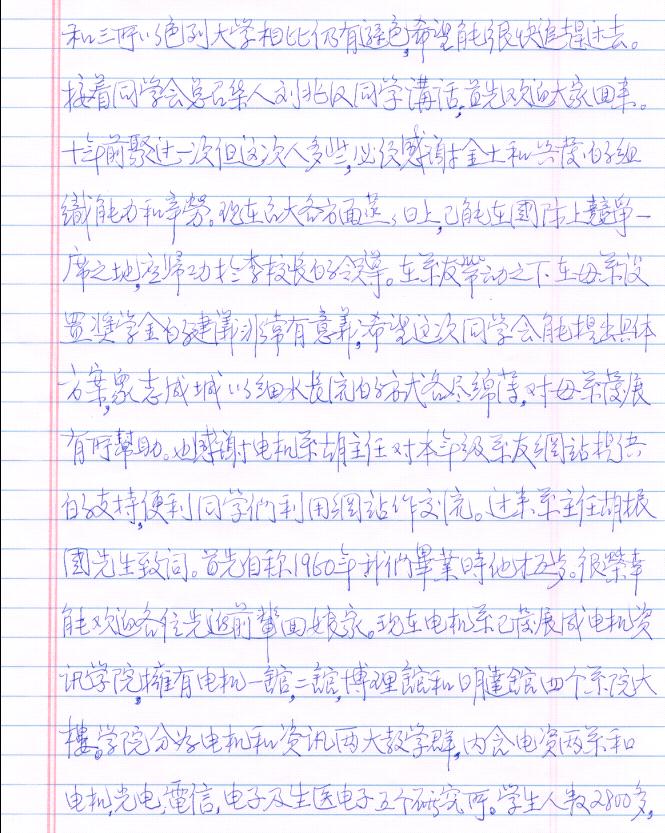 和三所以色列大学相比仍有遜色,希望能很快追趕过去。
接着同学会总召集人刘兆汉同学講話,首先欢迎大家回来。
十年前聚过一次但这次人多些,必须感谢金土和兴度的組
織能力和辛勞。现在台大各方面蒸蒸日上,已能在國际上競爭一
席之地,应歸功於李校长的領導。在系友带动之下在母系设
置奖学金的建議非常有意義,希望这次同学会能提出具体
方案,衆志成城以细水长流的方式各尽绵薄,对母系發展
有所幫助。也感谢电机系胡主任对本年级系友網站提供
的支持,便利同学們利用網站作交流。过来系主任胡振
國先生致词。首先自称1960年我們畢業時他才五歩。很榮幸
能欢迎各位先进前輩回娘家。现在电机系已發展成电机资
讯学院,擁有电机一館,二館,博理館和明達館四个系院大
樓。学院分为电机和资讯两大教学群,内含电资两系和
电机,光电,電信,电子及生医电子五个研究所。学生人数2800多,